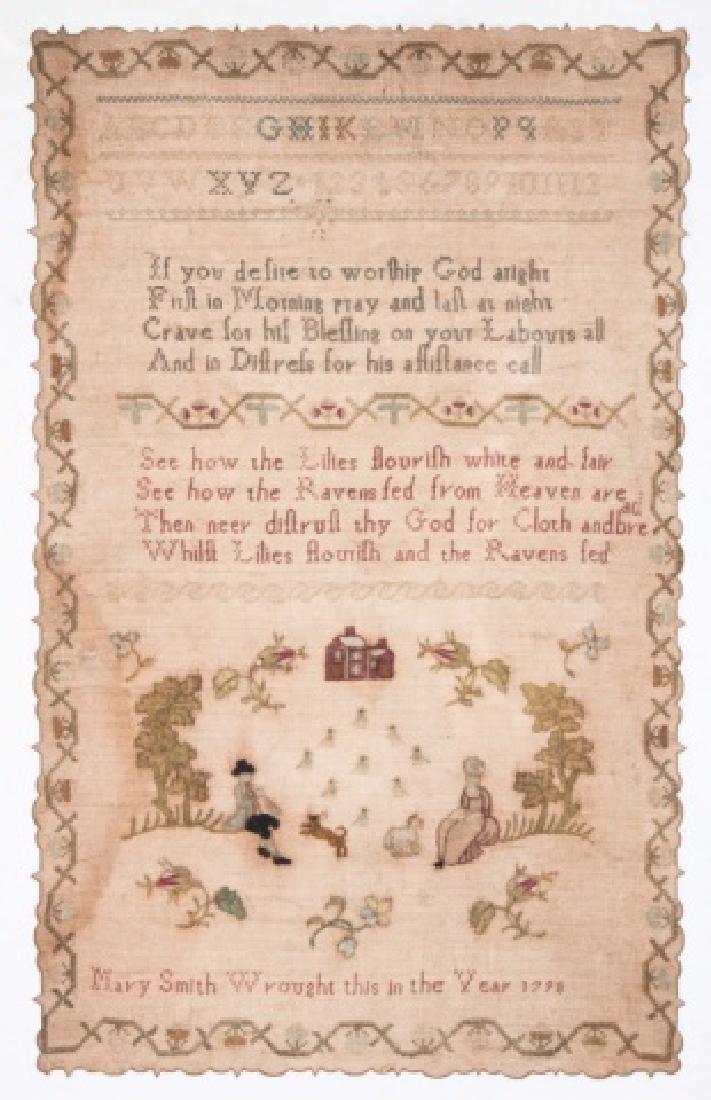 ABCDEFGHIKLMNOPQRST
UVWXYZ 123456789101112
If you deſire to worſhip God aright
Firſt in Morning pray and laſt at night
Crave for hiſ Bleſſing on your Labours all
And in Diſtreſs for his aſſiſtance call
See how the Lilies flouriſh white and fair
See how the Ravens fed from Heaven are
Then neer diſtruſt thy God for Cloth and Bread
Whilſt Lilies flouriſh and the Ravens fed
Mary Smith Wrought this in the Year